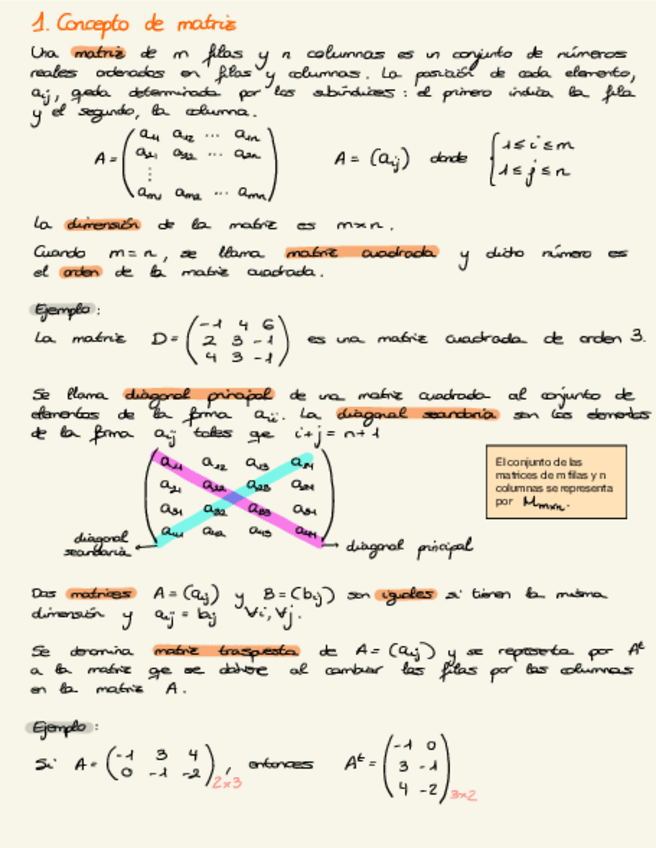 1. Concepto de matriz
Una matriz de m filas y n columnas es un conjunto de números
reales ordenados en filas y columnas. La posición de cada elemento,
aij, queda determinada por los subíndices: el primero indica la fila
y el segundo, la columna.
A = ( a11 a12 ... a1n
a21 a22 ... a2n
⋮
am1 am2 ... amn )
A = (aij) donde { 1 ≤ i ≤ m
1 ≤ j ≤ n
La dimensión de la matriz es m×n.
Cuando m = n, se llama matriz cuadrada y dicho número es
el orden de la matriz cuadrada.
Ejemplo:
La matriz D = ( -1 4 6
2 3 -1
4 3 -1 ) es una matriz cuadrada de orden 3.
Se llama diagonal principal de una matriz cuadrada al conjunto de
elementos de la forma aii. La diagonal secundaria son los elementos
de la forma aij tales qe i+j = n+1
a11 a12 a13 a14
a21 a22 a23 a24
a31 a32 a33 a34
a41 a42 a43 a44
diagonal
secundaria
diagonal principal
El conjunto de las
matrices de m filas y n
columnas se representa
por Mm×n.
Dos matrices A = (aij) y B = (bij) son iguales si tienen la misma
dimensión y aij = bij ∀i, ∀j.
Se denomina matriz traspuesta de A = (aij) y se representa por Aᵗ
a la matriz qe se obtiene al cambiar las filas por las columnas
en la matriz A.
Ejemplo:
Si A = ( -1 3 4
0 -1 -2 ) 2×3 , entonces Aᵗ = ( -1 0
3 -1
4 -2 ) 3×2